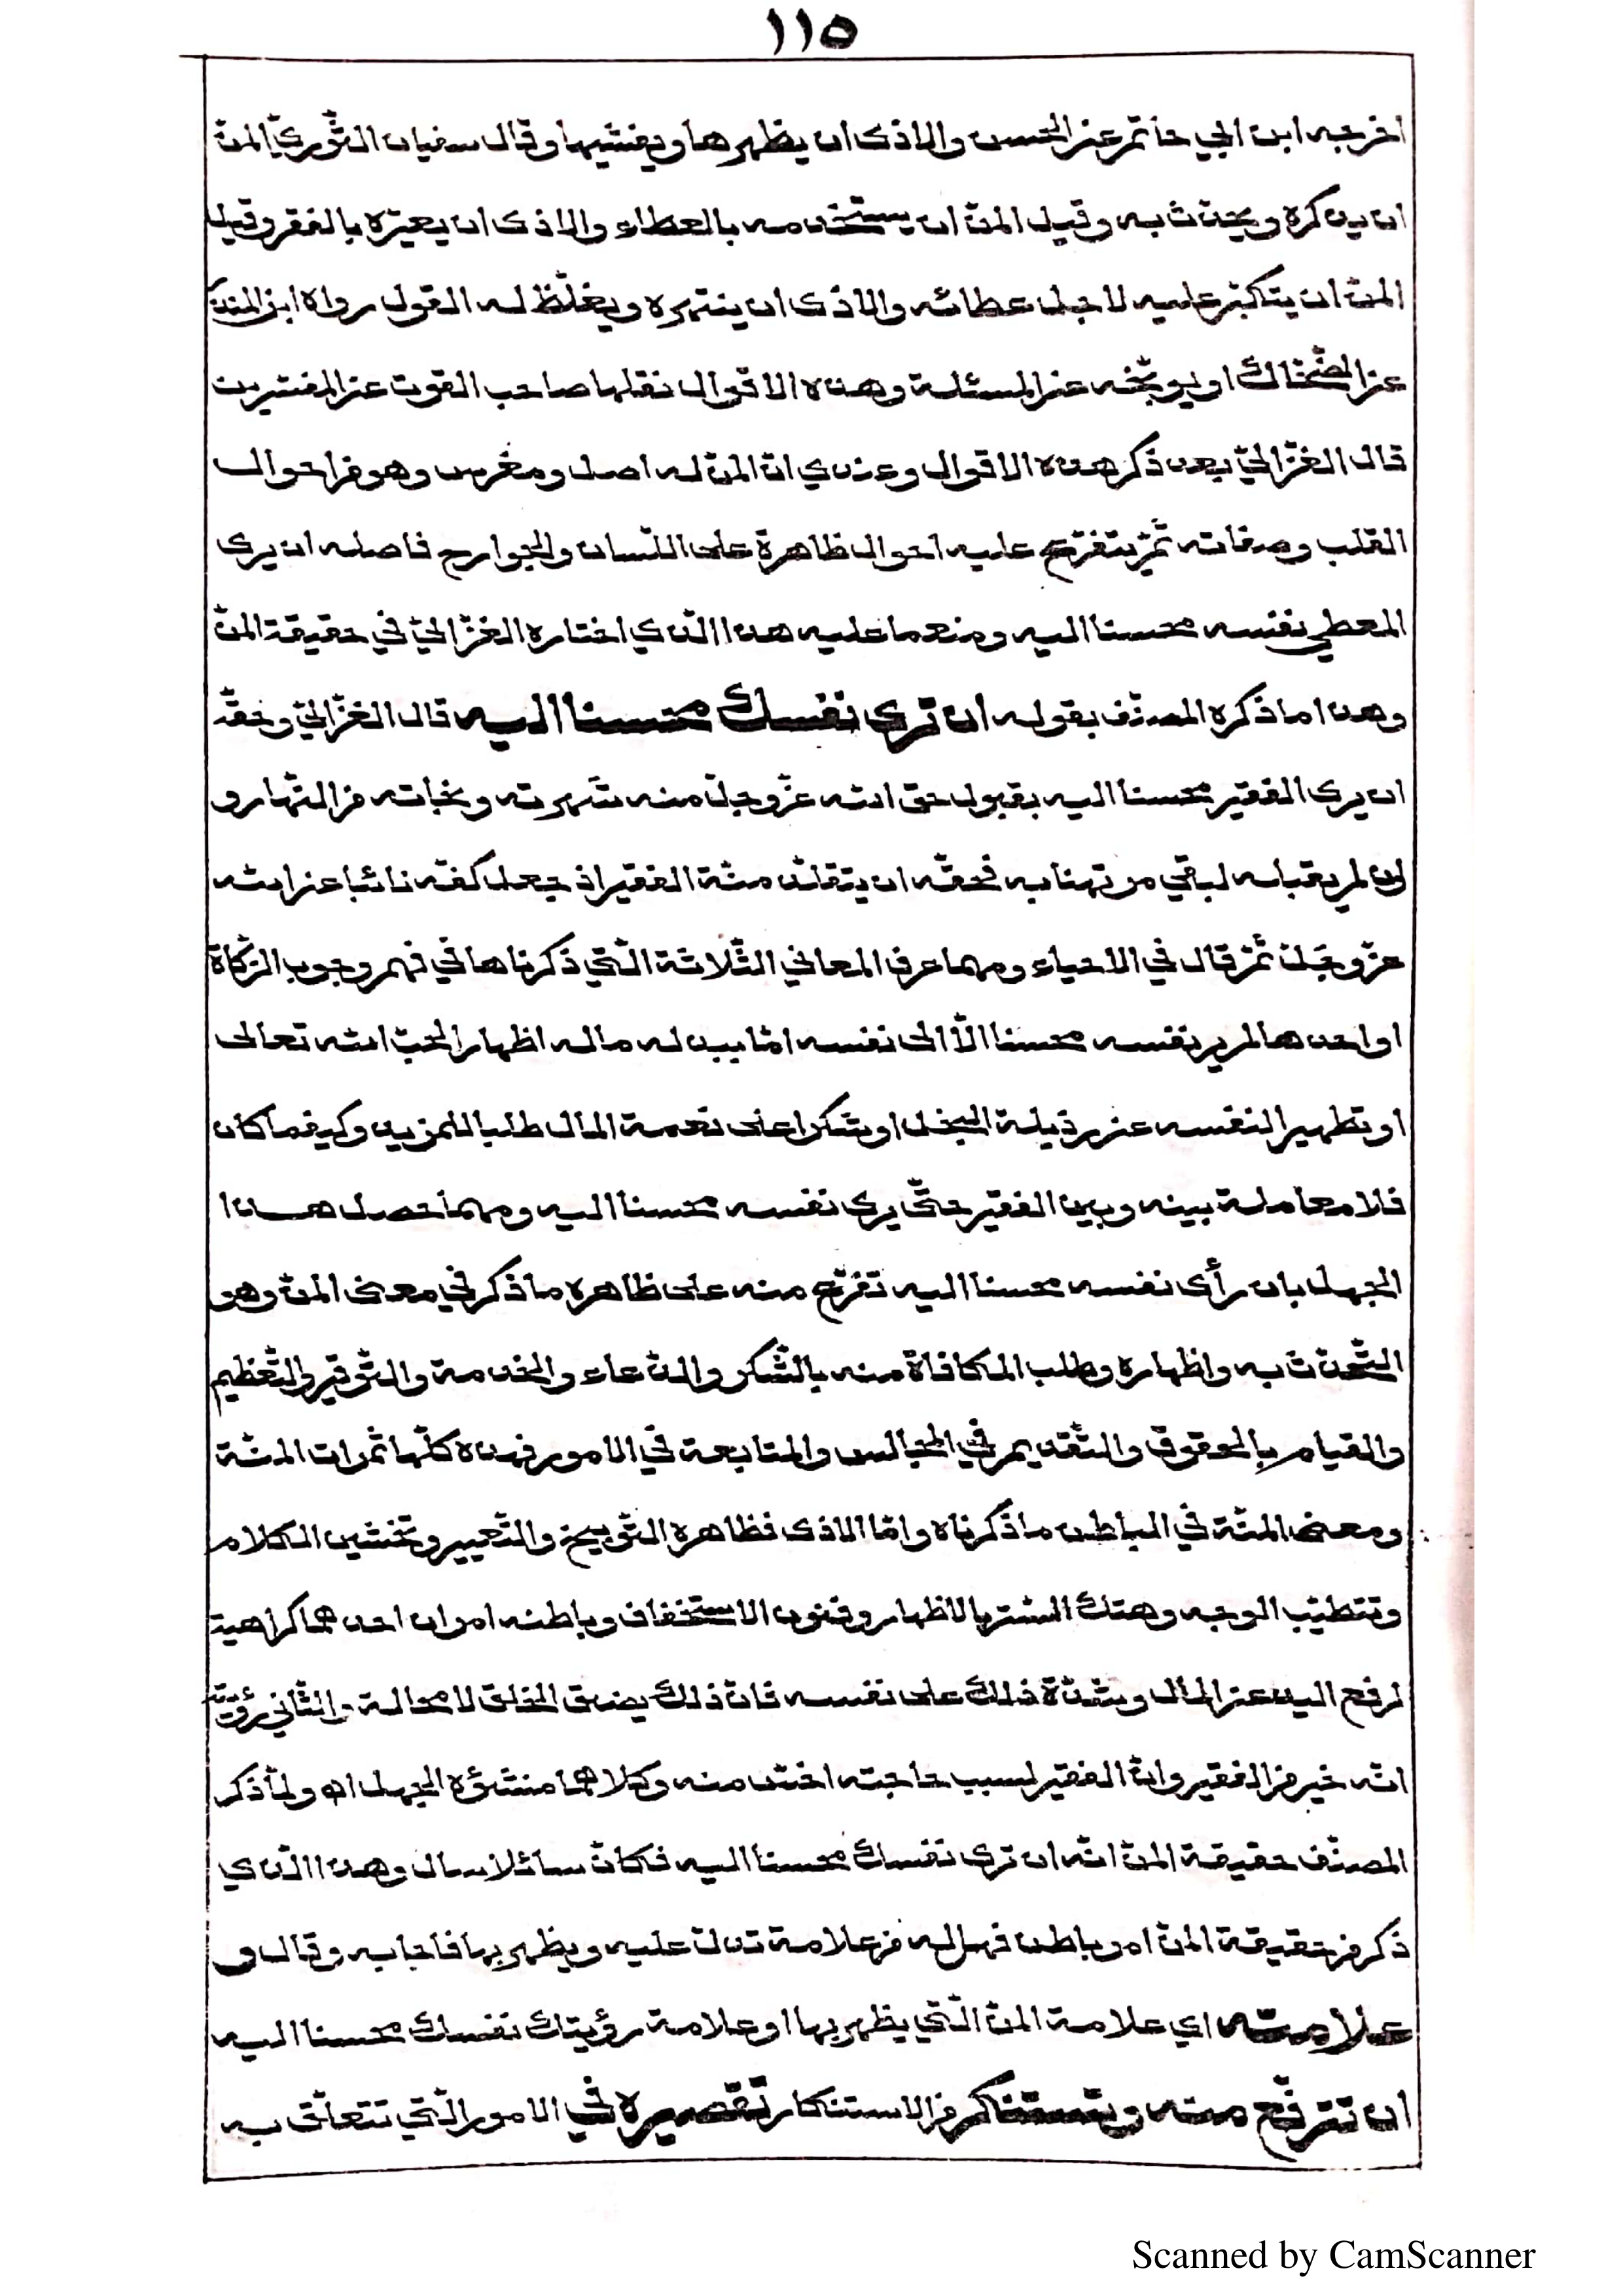 ١١٥
اخرجه ابن ابي حاتم عن الحسن والاذى ان يظهرها ويفشيها وقال سفيان الثّوريّ المنّ
ان يذكره ويحدّث به وقيل المنّ ان يستخدمه بالعطاء والاذى ان يعيّره بالفقر وقيل
المنّ ان يتكبّر عليه لاجل عطائه والاذى ان ينتهره ويغلّظ له القول رواه ابن المنذر
عن الضّحّاك او يوبّخه عن المسئلة وهذه الاقوال نقلها صاحب القوت عن المفسّرين
قال الغزّاليّ بعد ذكر هذه الاقوال وعندي انّ المنّ له اصل ومغرس وهو من احوال
القلب وصفاته ثمّ يتفرّع عليه احوال ظاهرة على اللّسان والجوارح فاصله ان يرى
المعطي نفسه محسنا اليه ومنعما عليه هذا الّذي اختاره الغزّاليّ في حقيقة المنّ
وهذا ما ذكره المصنّف بقوله ان ترى نفسك محسنا اليه قال الغزّاليّ وحقّه
ان يرى الفقير محسنا اليه بقبول حق الله عزّ وجلّ منه شهرته ونجاته من النّهار و
لو لم يقبله لبقي مرتهنا به فحقّه ان يتقلّد منّة الفقير اذ جعل كفّه نائبا عن الله
عزّ وجلّ ثمّ قال في الاحياء ومهما عرف المعاني الثّلاثة الّتي ذكرناها في فهم وجوب الزّكاة
او احدها لم ير نفسه محسنا الّا الى نفسه امّا ببذله ماله اظهارا لحبّ الله تعالى
او تطهيرا لنفسه عن رذيلة البخل او شكرا على نعمة المال طلبا للمزيد وكيفما كان
فلا معاملة بينه وبين الفقير حتّى يرى نفسه محسنا اليه ومهما حصل هذا
الجهل بان رأى نفسه محسنا اليه تفرّع منه على ظاهره ما ذكر في معنى المنّ وهو
التّحدّث به واظهاره وطلب المكافاة منه بالشّكر والدّعاء والخدمة والتّوقير والتّعظيم
والقيام بالحقوق والتّقديم في المجالس والمتابعة في الامور فهذه كلّها ثمرات المنّة
ومعنى المنّة في الباطن ما ذكرناه وامّا الاذى فظاهره التّوبيخ والتّعيير وتخشين الكلام
وتقطيب الوجه وهتك السّتر بالاظهار وفنون الاستخفاف وباطنه امران احدهما كراهية
لرفع اليد عن المال وشدّة ذلك على نفسه فانّ ذلك يضيق الخلق لا محالة والثّاني رؤيته
انّه خير من الفقير وانّ الفقير لسبب حاجته اخسّ منه وكلاهما منشؤه الجهل اه ولمّا ذكر
المصنّف حقيقة المنّ انّه ان ترى نفسك محسنا اليه فكانّ سائلا سال وهذا الّذي
ذكر من حقيقة المنّ امر باطن فهل له من علامة تدلّ عليه ويظهر بها فاجاب وقال و
علامته اي علامة المنّ الّتي يظهر بها او علامة رؤيتك نفسك محسنا اليه
ان تترفّع منه وتستنكر من الاستنكار تقصيره في الامور الّتي تتعلّق به
Scanned by CamScanner